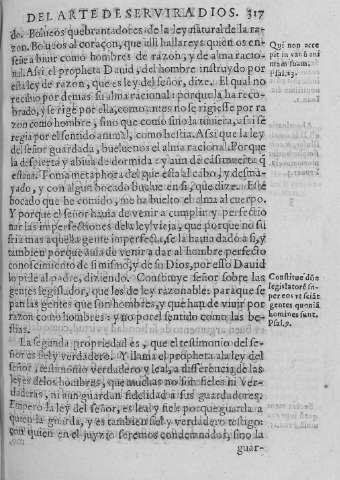 DEL ARTE DE SERVIR A DIOS. 317
do. Bolueos quebrantadores de la ley natural de la ra-
zon. Bolueos al coraçon, que alli hallareys quien os en-
señe a biuir como hombres de razon, y de alma racio-
nal. Assi el propheta Dauid, del hombre instruydo por
esta ley de razon, que es ley del señor, dize. El qual no
recibio por demas su alma racional: porque la ha reco-
brado, y se rige por ella, como antes no se rigiesse por ra
zon como hombre, sino que como sino la tuuiera, assi se
regia por el sentido animal, como bestia. Assi que la ley
del señor guardada, bueluenos el alma racional. Porque
la despierta y abiua de dormida: y aun de casi muerta q̃
estaua. Toma metaphora del que esta al cabo, y desma-
yado, y con algun bocado buelue en si, que dize. Este
bocado que he comido, me ha buelto el alma al cuerpo.
Y porque el señor hauia de venir a cumplir y perfectio
nar las imperfectiones dela ley vieja, que porque no su
fria mas aquella gente imperfecta, se la hauia dado a si, y
tambien porque auia de venir a dar al hombre perfecto
conoscimiento de si mismo, y de su Dios, por esso Dauid
lo pide al padre, diziendo. Constituye señor sobre las
gentes legislador, que les de ley razonable: para que se
pan las gentes que son hombres, y que han de viuir por
razon como hombres: y no por el sentido como las be-
stias.
La segunda propriedad es, que el testimonio del se-
ñor es fiel y verdadero. Y llama el propheta ala ley del
señor, testimonio verdadero y leal, a differēcia de las
leyes delos hombres, que muchas no son fieles ni ver-
daderas, ni aun guardan fidelidad a sus guardadores.
Empero la ley del señor, es leal y fiel: porque guarda a
quien la guarda, y es tambien fiel y verdadero testigo:
con quien en el juyzio seremos condemnados, sino la
guar-
Qui non acce
pit in vanũ ani
mã suam.
Psal.23.
Constitue dñe
legislatorẽ su-
per eos vt sciãt
gentes quoniã
homines sunt.
Psal.9.